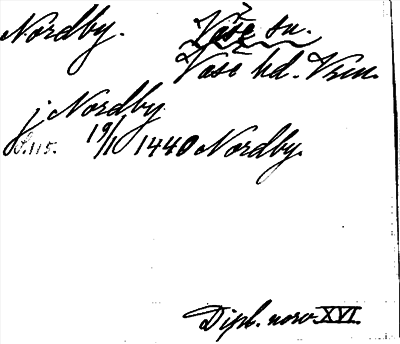 Nordby. Väse sn.
Väse hd. Vrm.
j Nordby
S. 115. 19/1 1440 Nordby.
Dipl. norv. XVI.